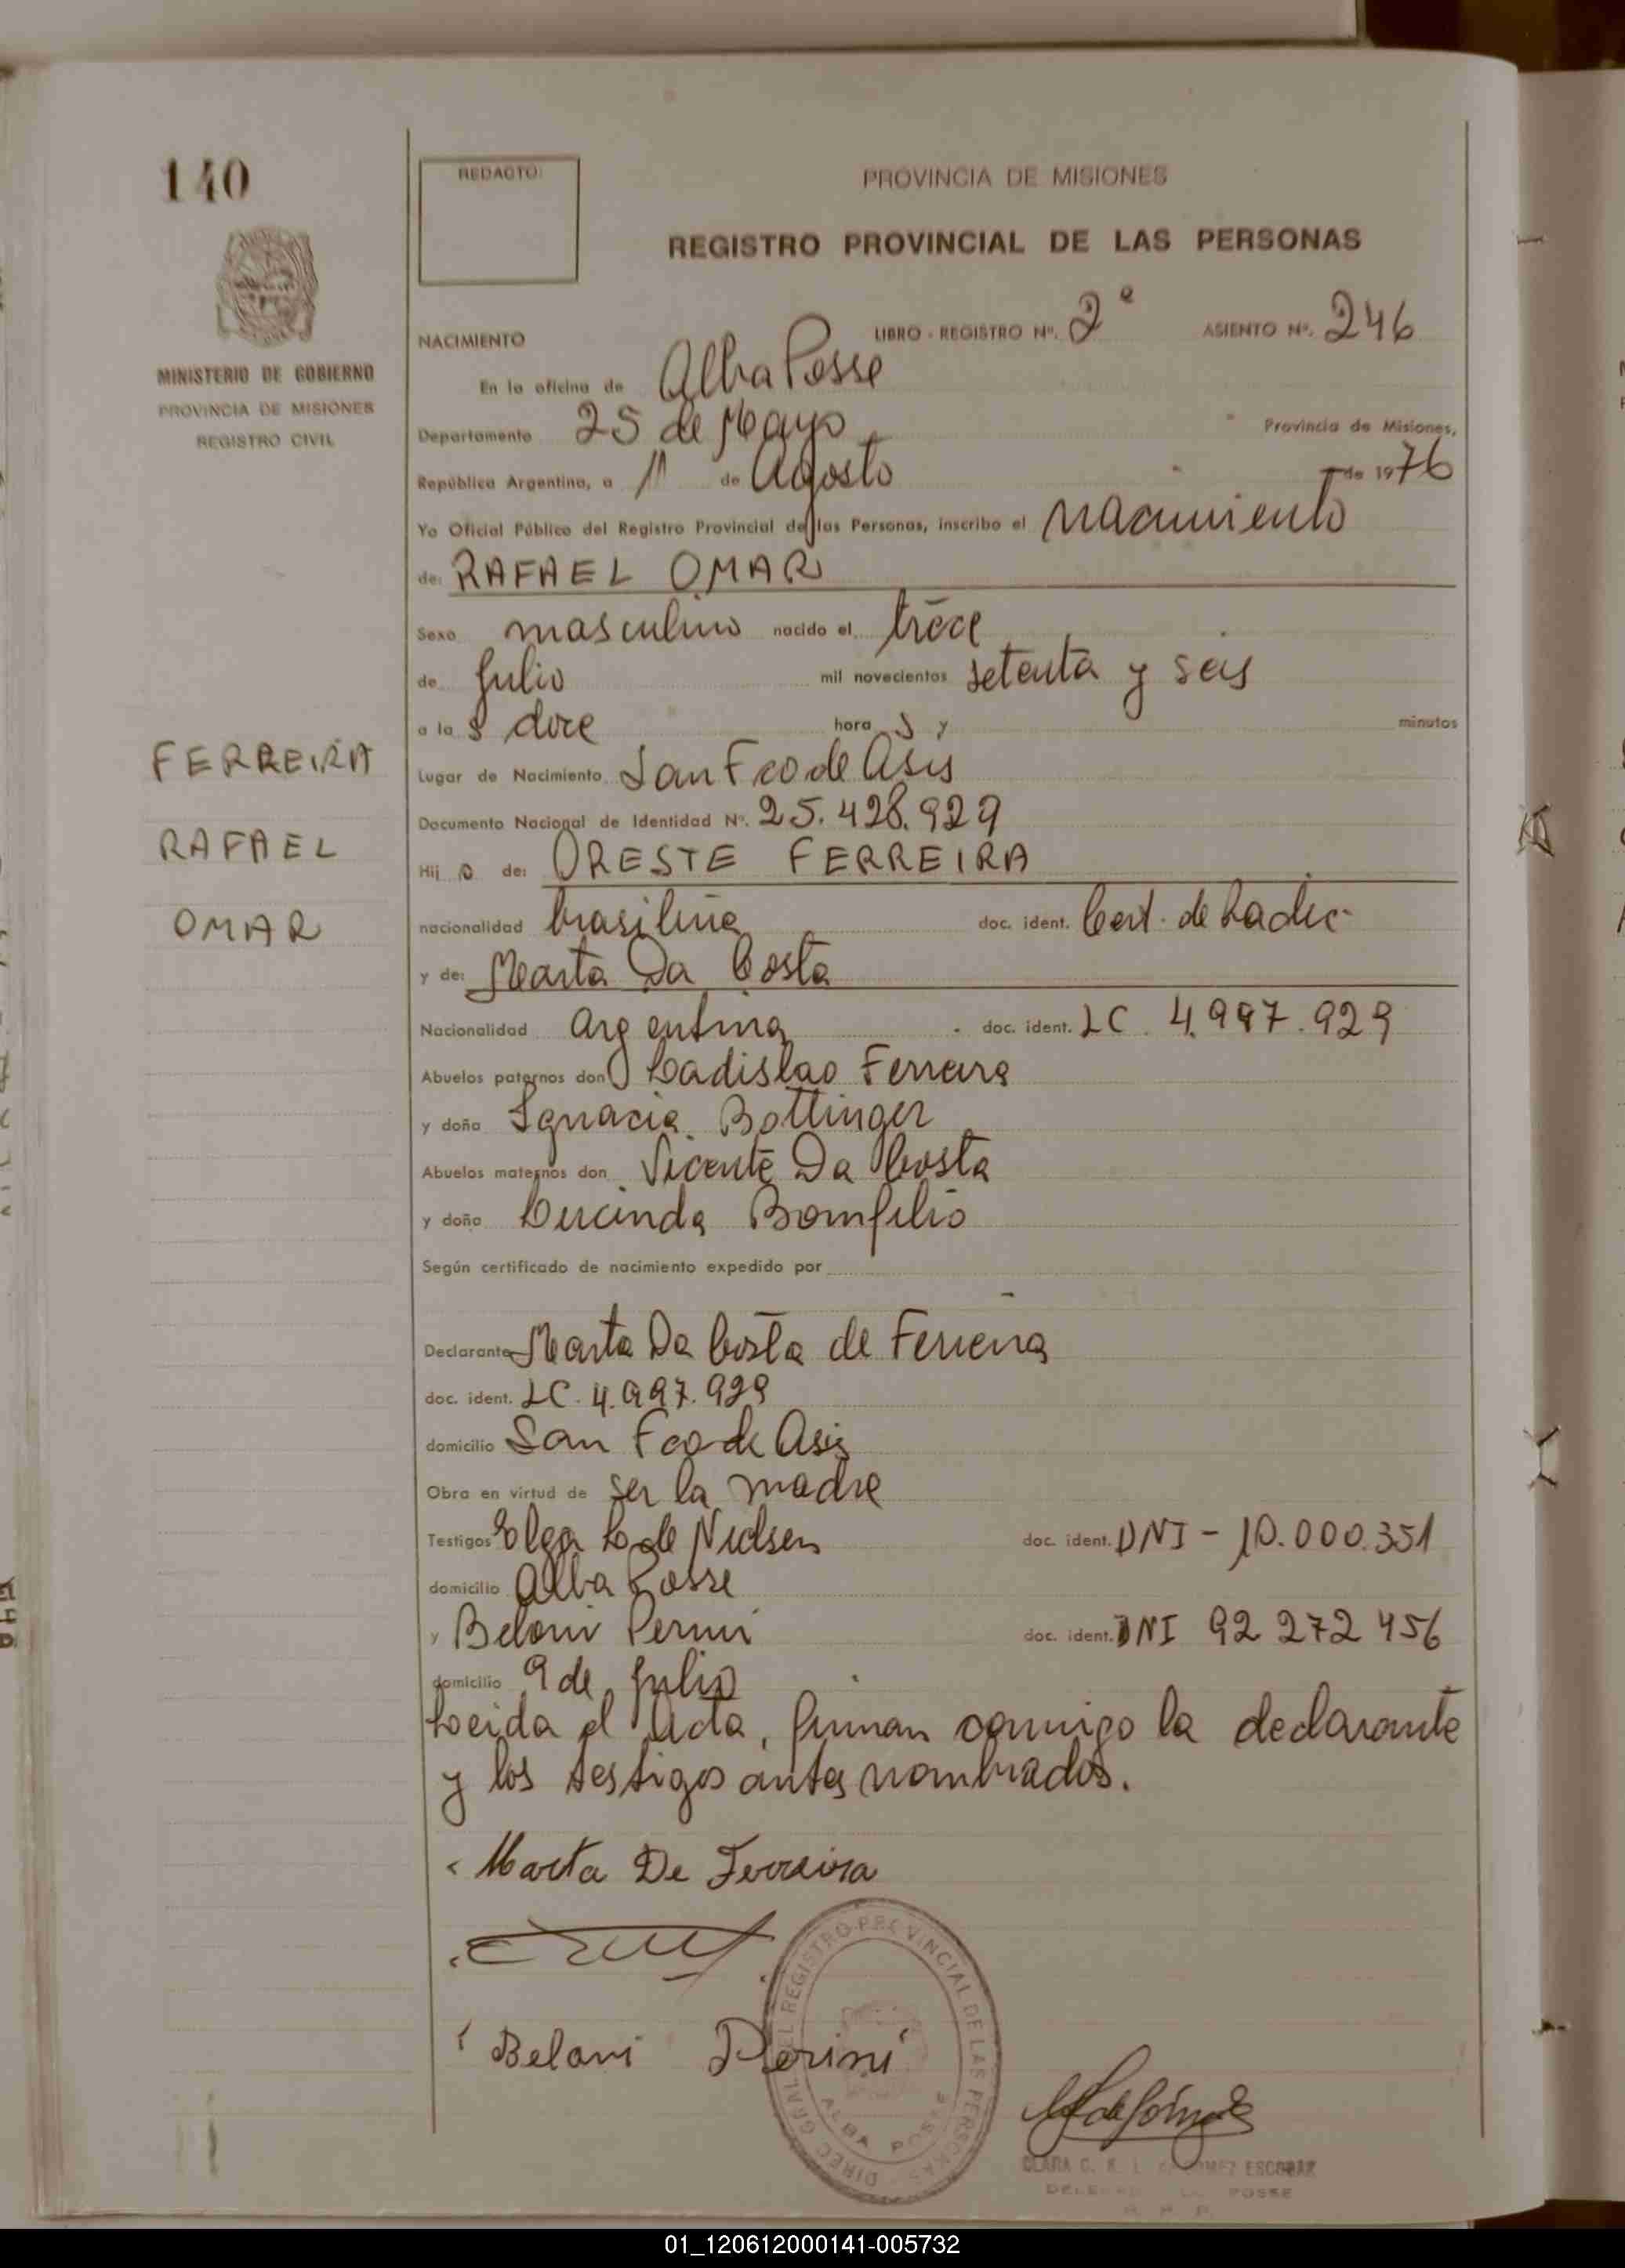 140
REDACTO:
PROVINCIA DE MISIONES
REGISTRO PROVINCIAL DE LAS PERSONAS
MINISTERIO DE GOBIERNO
PROVINCIA DE MISIONES
REGISTRO CIVIL
NACIMIENTO LIBRO - REGISTRO Nº. 2º ASIENTO Nº. 246
En la oficina de Alba Posse
Departamento 25 de Mayo Provincia de Misiones,
República Argentina, a 11 de Agosto de 1976
Yo Oficial Público del Registro Provincial de las Personas, inscribo el nacimiento
de: RAFAEL OMAR
Sexo masculino nacido el trece
de Julio mil novecientos setenta y seis
a la s doce hora s y minutos
FERREIRA
RAFAEL
OMAR
Lugar de Nacimiento San Fco de Asis
Documento Nacional de Identidad Nº. 25.428.929
Hij o de: ORESTE FERREIRA
nacionalidad brasileña doc. ident. Cert. de Radic.
y de: Marta Da Costa
Nacionalidad argentina doc. ident. LC 4.997.929
Abuelos paternos don Ladislao Ferreira
y doña Ignacia Bottinger
Abuelos maternos don Vicente Da Costa
y doña Bomfilio
Según certificado de nacimiento expedido por
Declarante Marta Da Costa de Ferreira
doc. ident. LC. 4.997.929
domicilio San Fco de Asis
Obra en virtud de ser la madre
Testigos Olga L de Nielsen doc. ident. DNI - 10.000.351
domicilio Alba Posse
y Beloni Perini doc. ident. DNI 92 272 456
domicilio 9 de Julio
Leida el Acta, firman conmigo la declarante
y los testigos antes nombrados.
Marta De Ferreira
Beloni Perini
DIREC. GRAL. DEL REGISTRO PROVINCIAL DE LAS PERSONAS
ALBA POSSE
CLARA C. K. L. GOMEZ ESCOBAR
POSSE
01_120612000141-005732